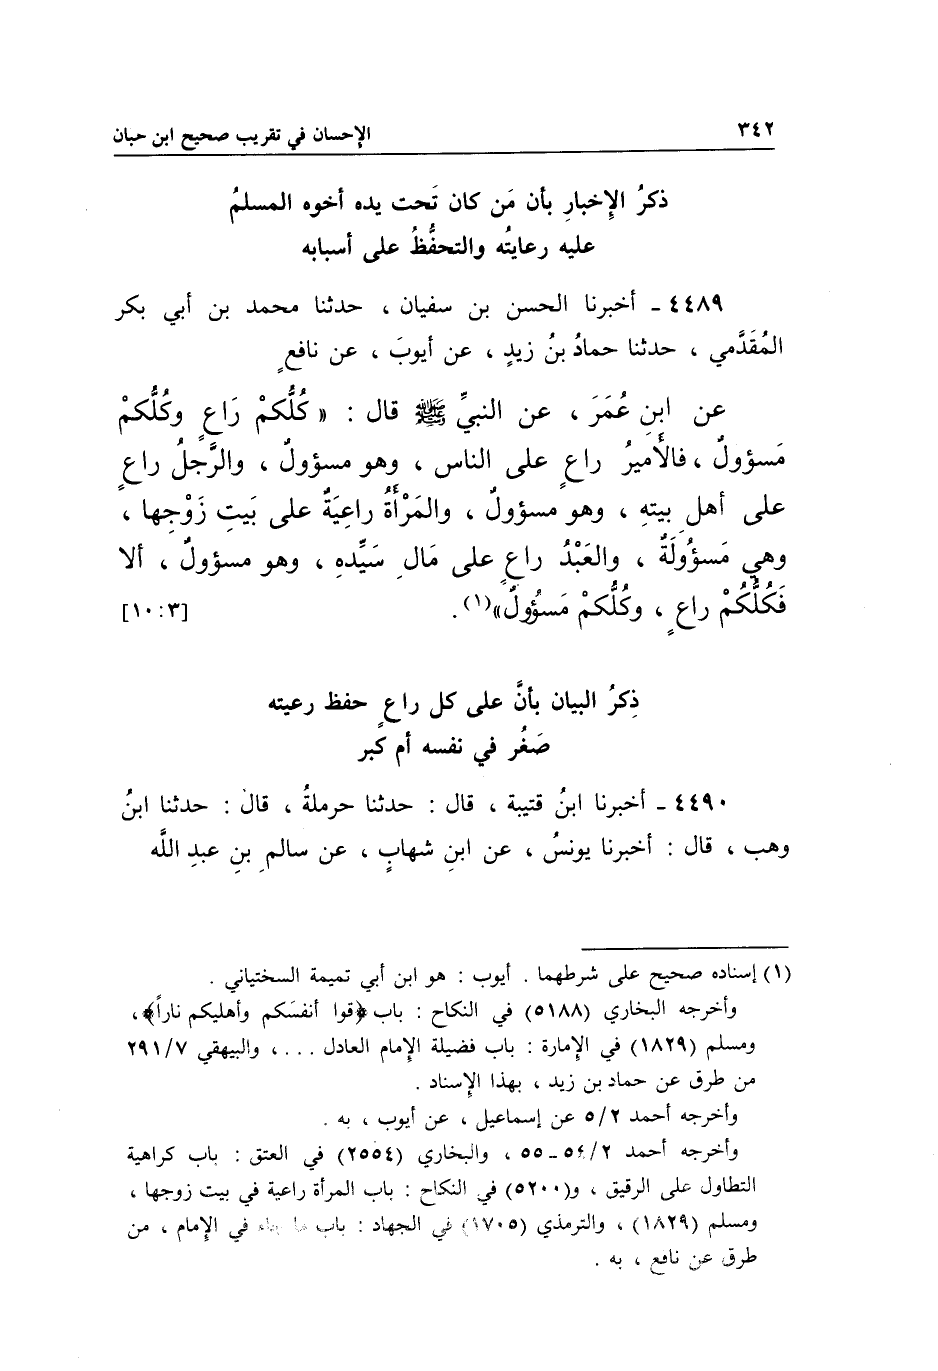 ٣٤٢ الإحسان في تقريب صحيح ابن حبان
ذكرُ الإِخبارِ بأن مَن كان تَحت يده أخوه المسلمُ
عليه رعايتُه والتحفُّظُ على أسبابه
٤٤٨٩ ـ أخبرنا الحسن بن سفيان ، حدثنا محمد بن أبي بكر
المُقَدَّمي ، حدثنا حمادُ بنُ زيدٍ ، عن أيوبَ ، عن نافعٍ
عن ابنِ عُمَرَ ، عن النبيِّ ﷺ قال : « كُلُّكمْ رَاعٍ وكُلُّكمْ
مَسؤولٌ ، فالأَميرُ راعٍ على الناس ، وهو مسؤولٌ ، والرَّجلُ راعٍ
على أهلِ بيتهِ ، وهو مسؤولٌ ، والمَرْأَةُ راعِيَةٌ على بَيتِ زَوْجِها ،
وهي مَسؤُولَةٌ ، والعَبْدُ راعٍ على مَالِ سَيِّدهِ ، وهو مسؤولٌ ، ألا
فَكُلُّكُمْ راعٍ ، وكُلُّكمْ مَسؤُولٌ»(١) . [٣ : ١٠]
ذِكرُ البيان بأنَّ على كل راعٍ حفظ رعيته
صَغُر في نفسه أم كبر
٤٤٩٠ ـ أخبرنا ابنُ قتيبة ، قال : حدثنا حرملةُ ، قال : حدثنا ابنُ
وهب ، قال : أخبرنا يونسُ ، عن ابنِ شهابٍ ، عن سالمِ بنِ عبدِ الله
(١) إسناده صحيح على شرطهما . أيوب : هو ابن أبي تميمة السختياني .
وأخرجه البخاري (٥١٨٨) في النكاح : باب ﴿قوا أنفسَكم وأهليكم ناراً﴾ ،
ومسلم (١٨٢٩) في الإمارة : باب فضيلة الإمام العادل . . . ، والبيهقي ٢٩١/٧
من طرق عن حماد بن زيد ، بهذا الإسناد .
وأخرجه أحمد ٥/٢ عن إسماعيل ، عن أيوب ، به .
وأخرجه أحمد ٥٤/٢ ـ ٥٥ ، والبخاري (٢٥٥٤) في العتق : باب كراهية
التطاول على الرقيق ، و(٥٢٠٠) في النكاح : باب المرأة راعية في بيت زوجها ،
ومسلم (١٨٢٩) ، والترمذي (١٧٠٥) في الجهاد : باب ما جاء في الإمام ، من
طرق عن نافع ، به .